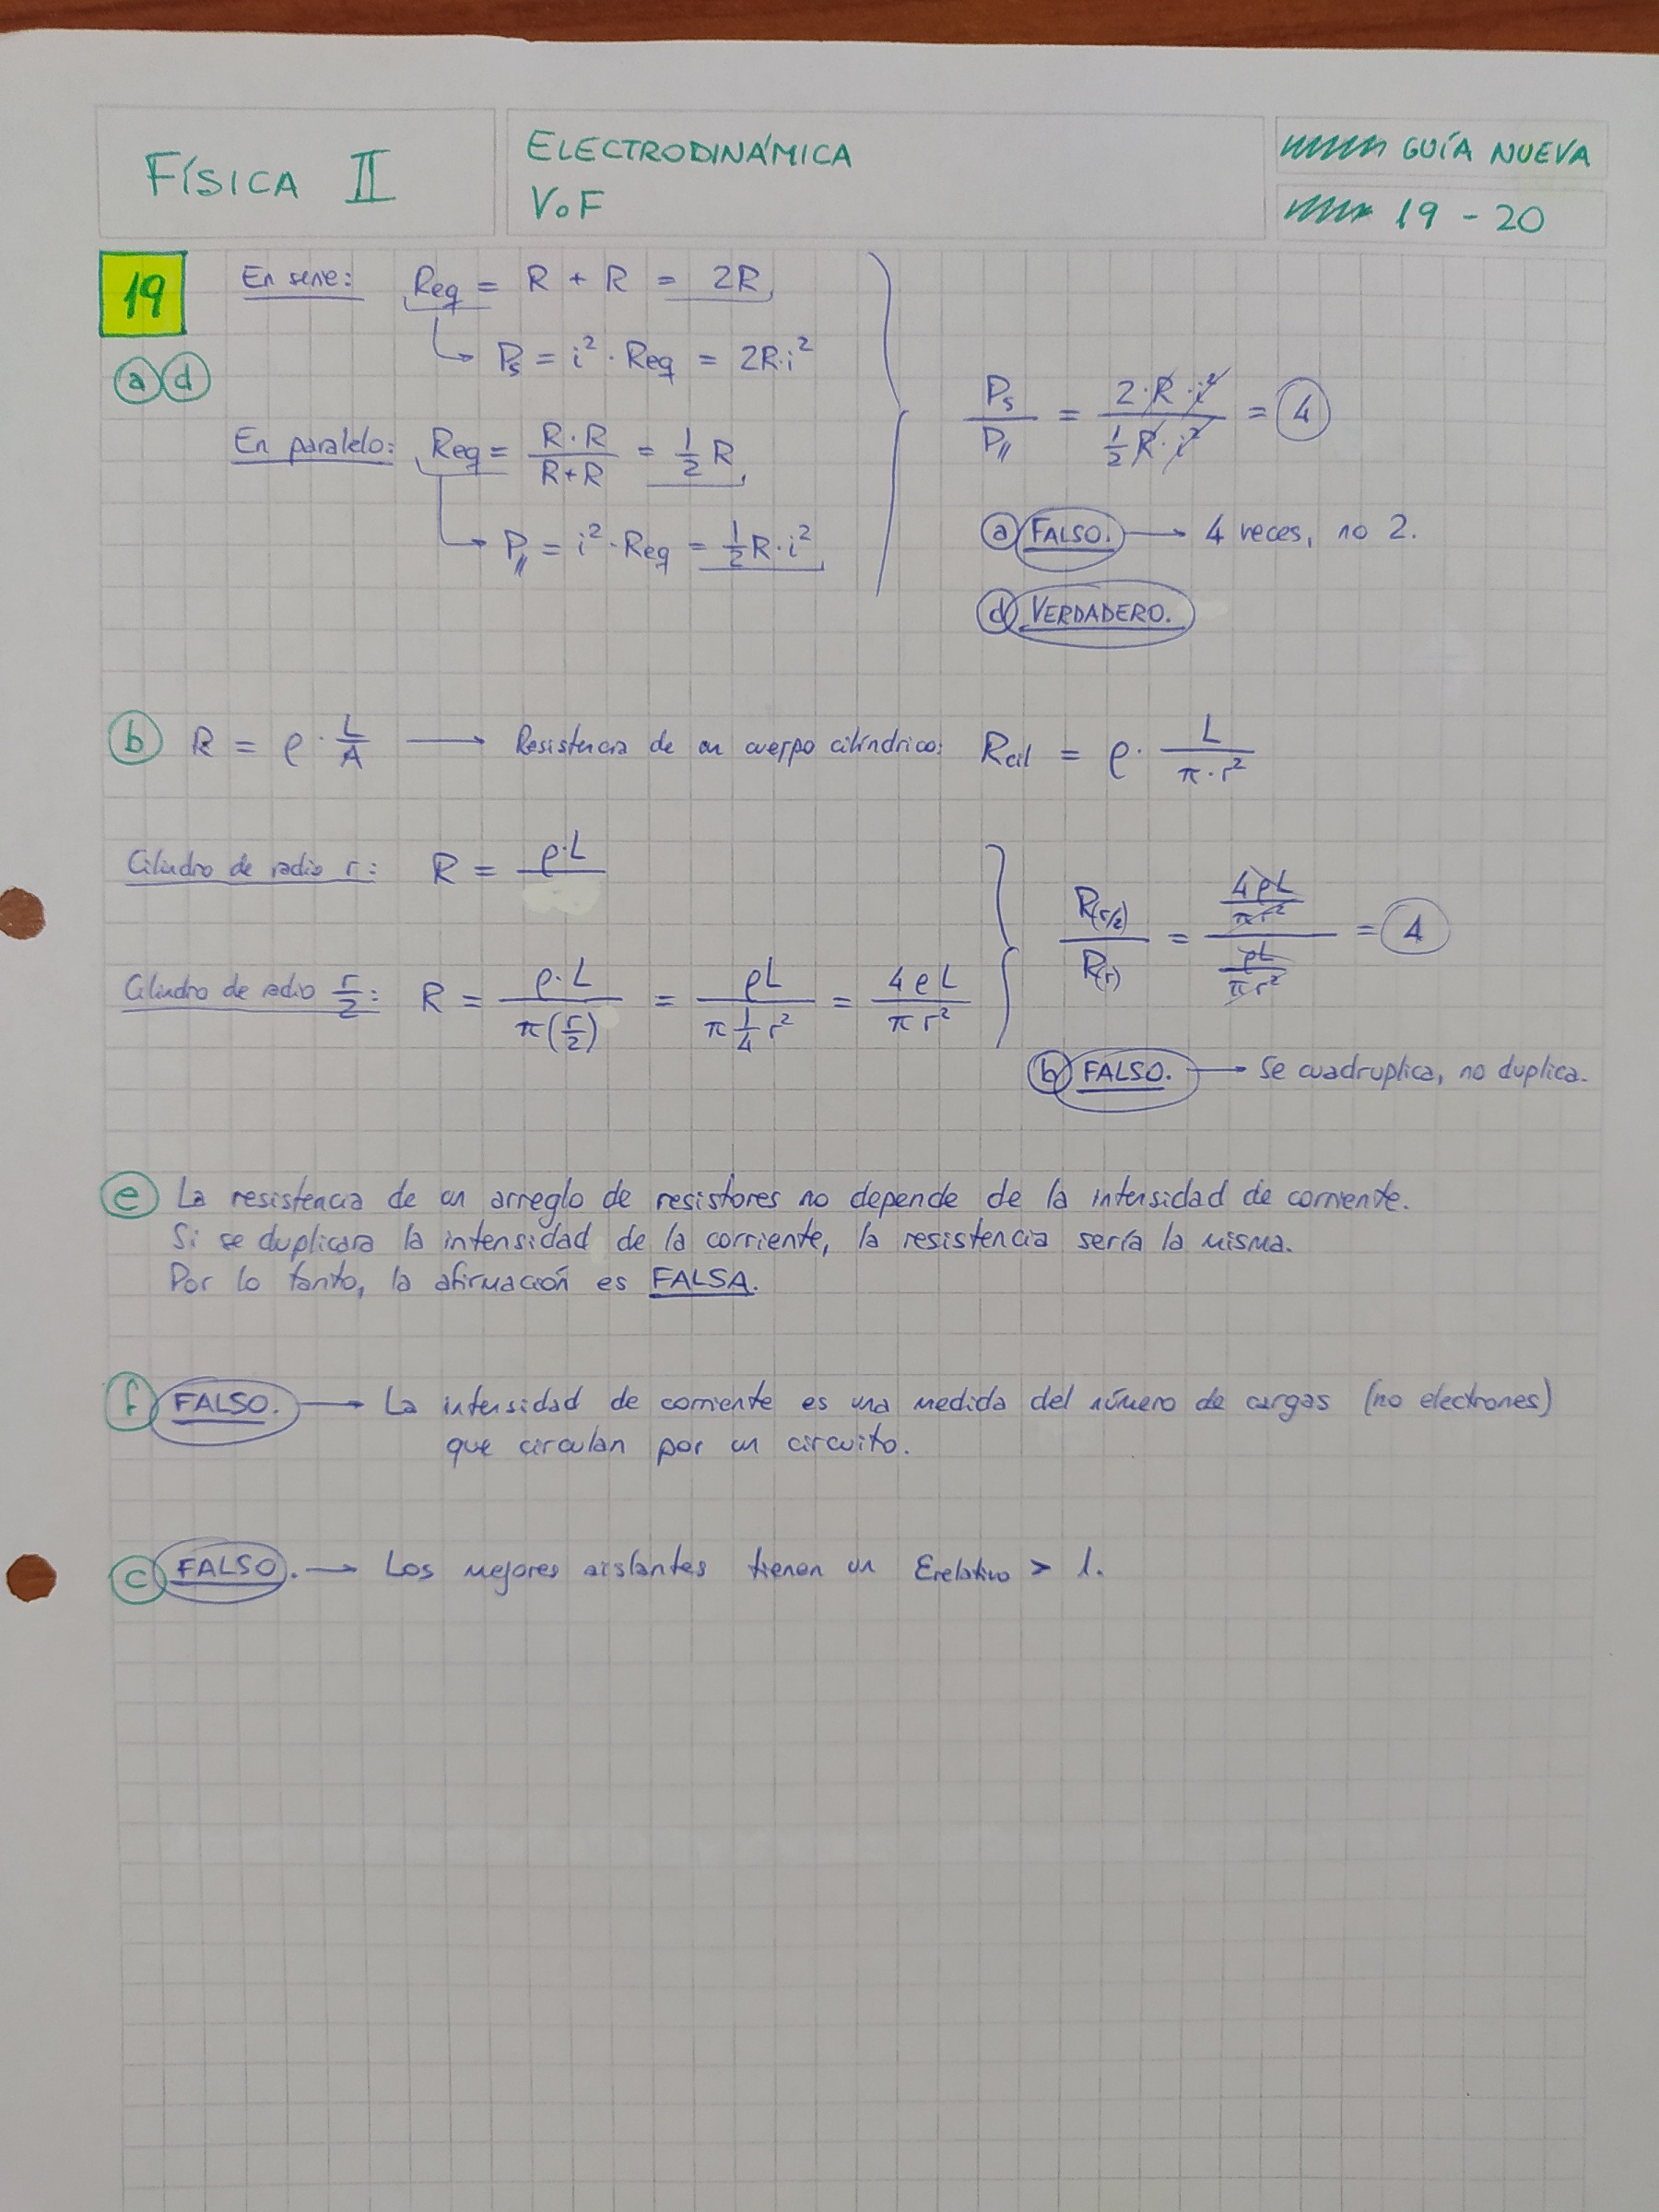 FÍSICA II
ELECTRODINÁMICA
V o F
GUÍA NUEVA
19 - 20
19
a d
En serie: Req = R + R = 2R
Ps = i² · Req = 2R·i²
En paralelo: Req = R·R / R+R = 1/2 R
P// = i² · Req = 1/2 R·i²
Ps / P// = 2·R·i² / 1/2 R·i² = 4
a FALSO. → 4 veces, no 2.
d VERDADERO.
b R = ρ · L/A → Resistencia de un cuerpo cilíndrico: Rcil = ρ · L / π·r²
Cilindro de radio r: R = ρ·L /
Cilindro de radio r/2: R = ρ·L / π(r/2) = ρL / π 1/4 r² = 4ρL / πr²
R(r/2) / R(r) = 4ρL/πr² / ρL/πr² = 4
b FALSO. → Se cuadruplica, no duplica.
e La resistencia de un arreglo de resistores no depende de la intensidad de corriente.
Si se duplicara la intensidad de la corriente, la resistencia sería la misma.
Por lo tanto, la afirmación es FALSA.
f FALSO. → La intensidad de corriente es una medida del número de cargas (no electrones)
que circulan por un circuito.
c FALSO. → Los mejores aislantes tienen un Erelativo > 1.